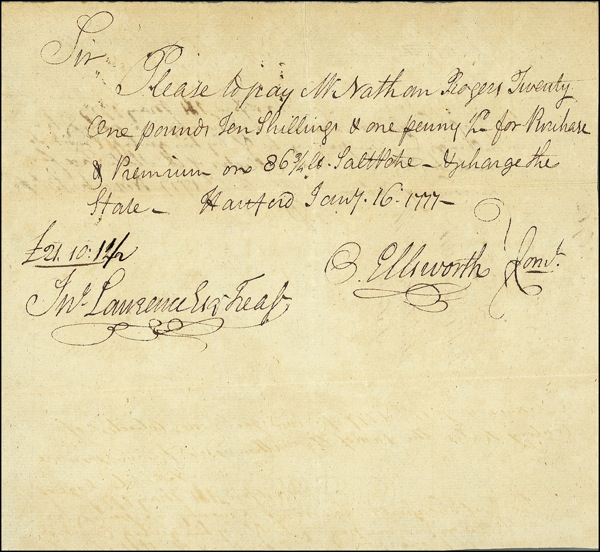 Sir
Please to pay Mr Nathan Rogers Twenty
One pounds Ten Shillings & one penny ½ for Purchase
& Premium on 86¾ lb. Saltpetre – & charge the
State – Hartford Jany. 16. 1777 –
£21.10.1½
O. Ellsworth Comt.
Jno. Lawrence Esqr Treasr